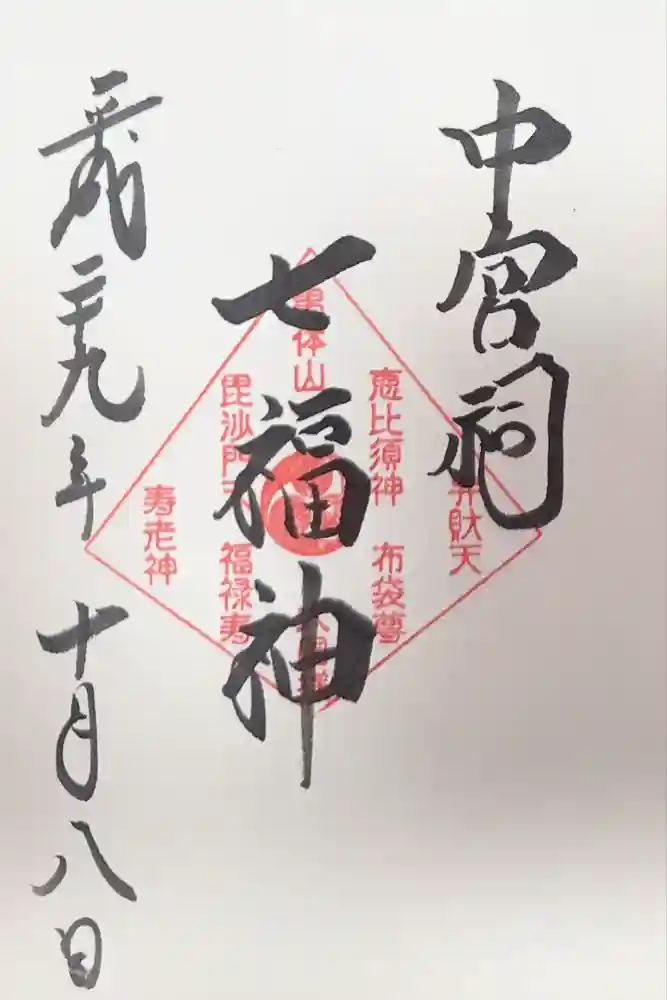 中宮祠
七福神
平成二十九年 十月八日
男体山
弁財天
恵比須神
布袋尊
毘沙門天
福禄寿
寿老神